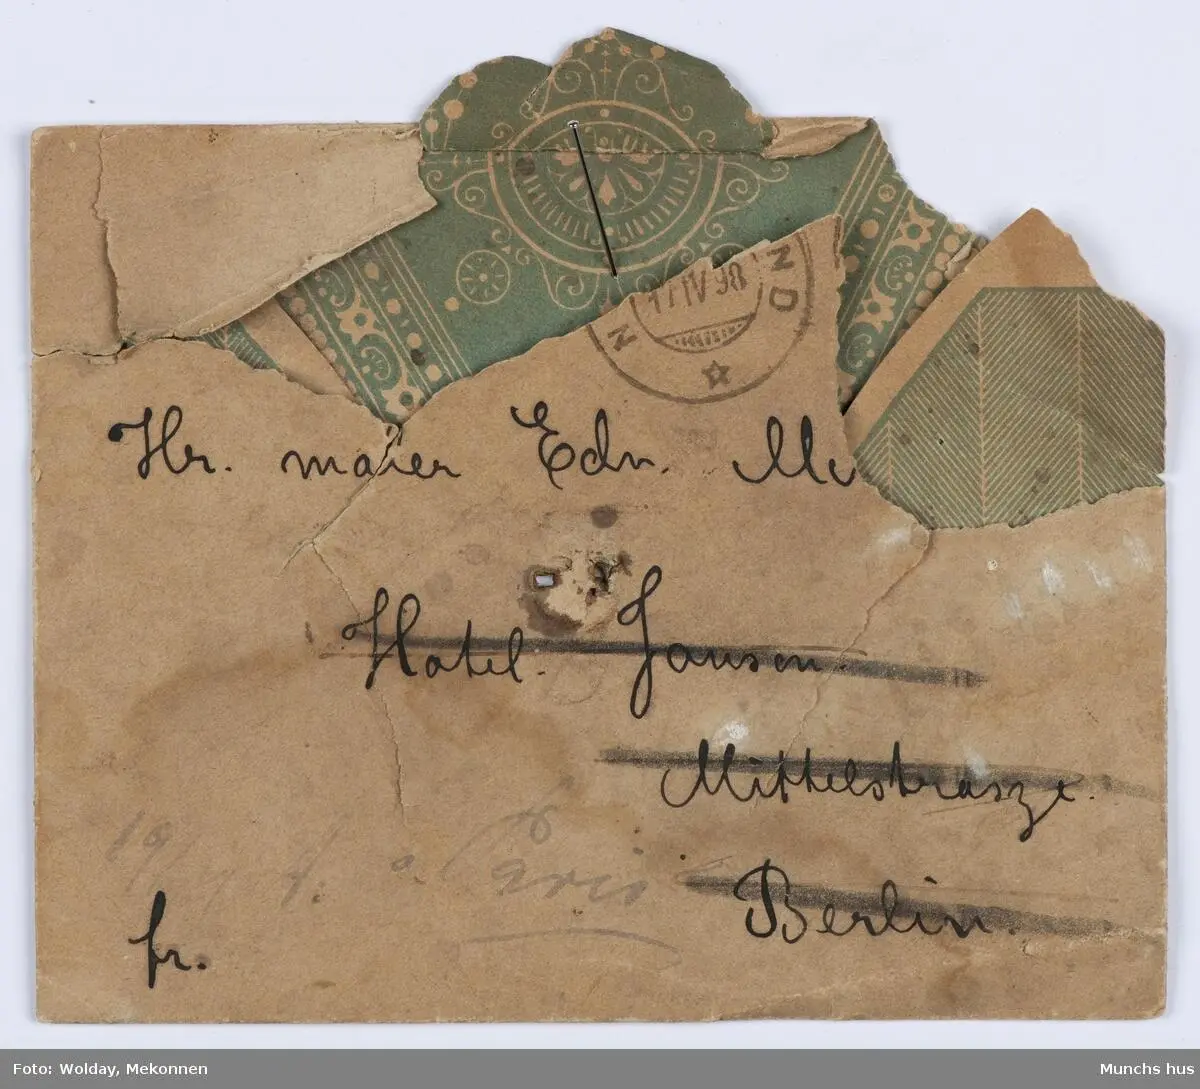 17 IV 98
N D
N
Hr. maler Edn. Mu
Hotel. Jansen.
Mittelstrasze.
Berlin.
Paris
fr.
Foto: Wolday, Mekonnen
Munchs hus